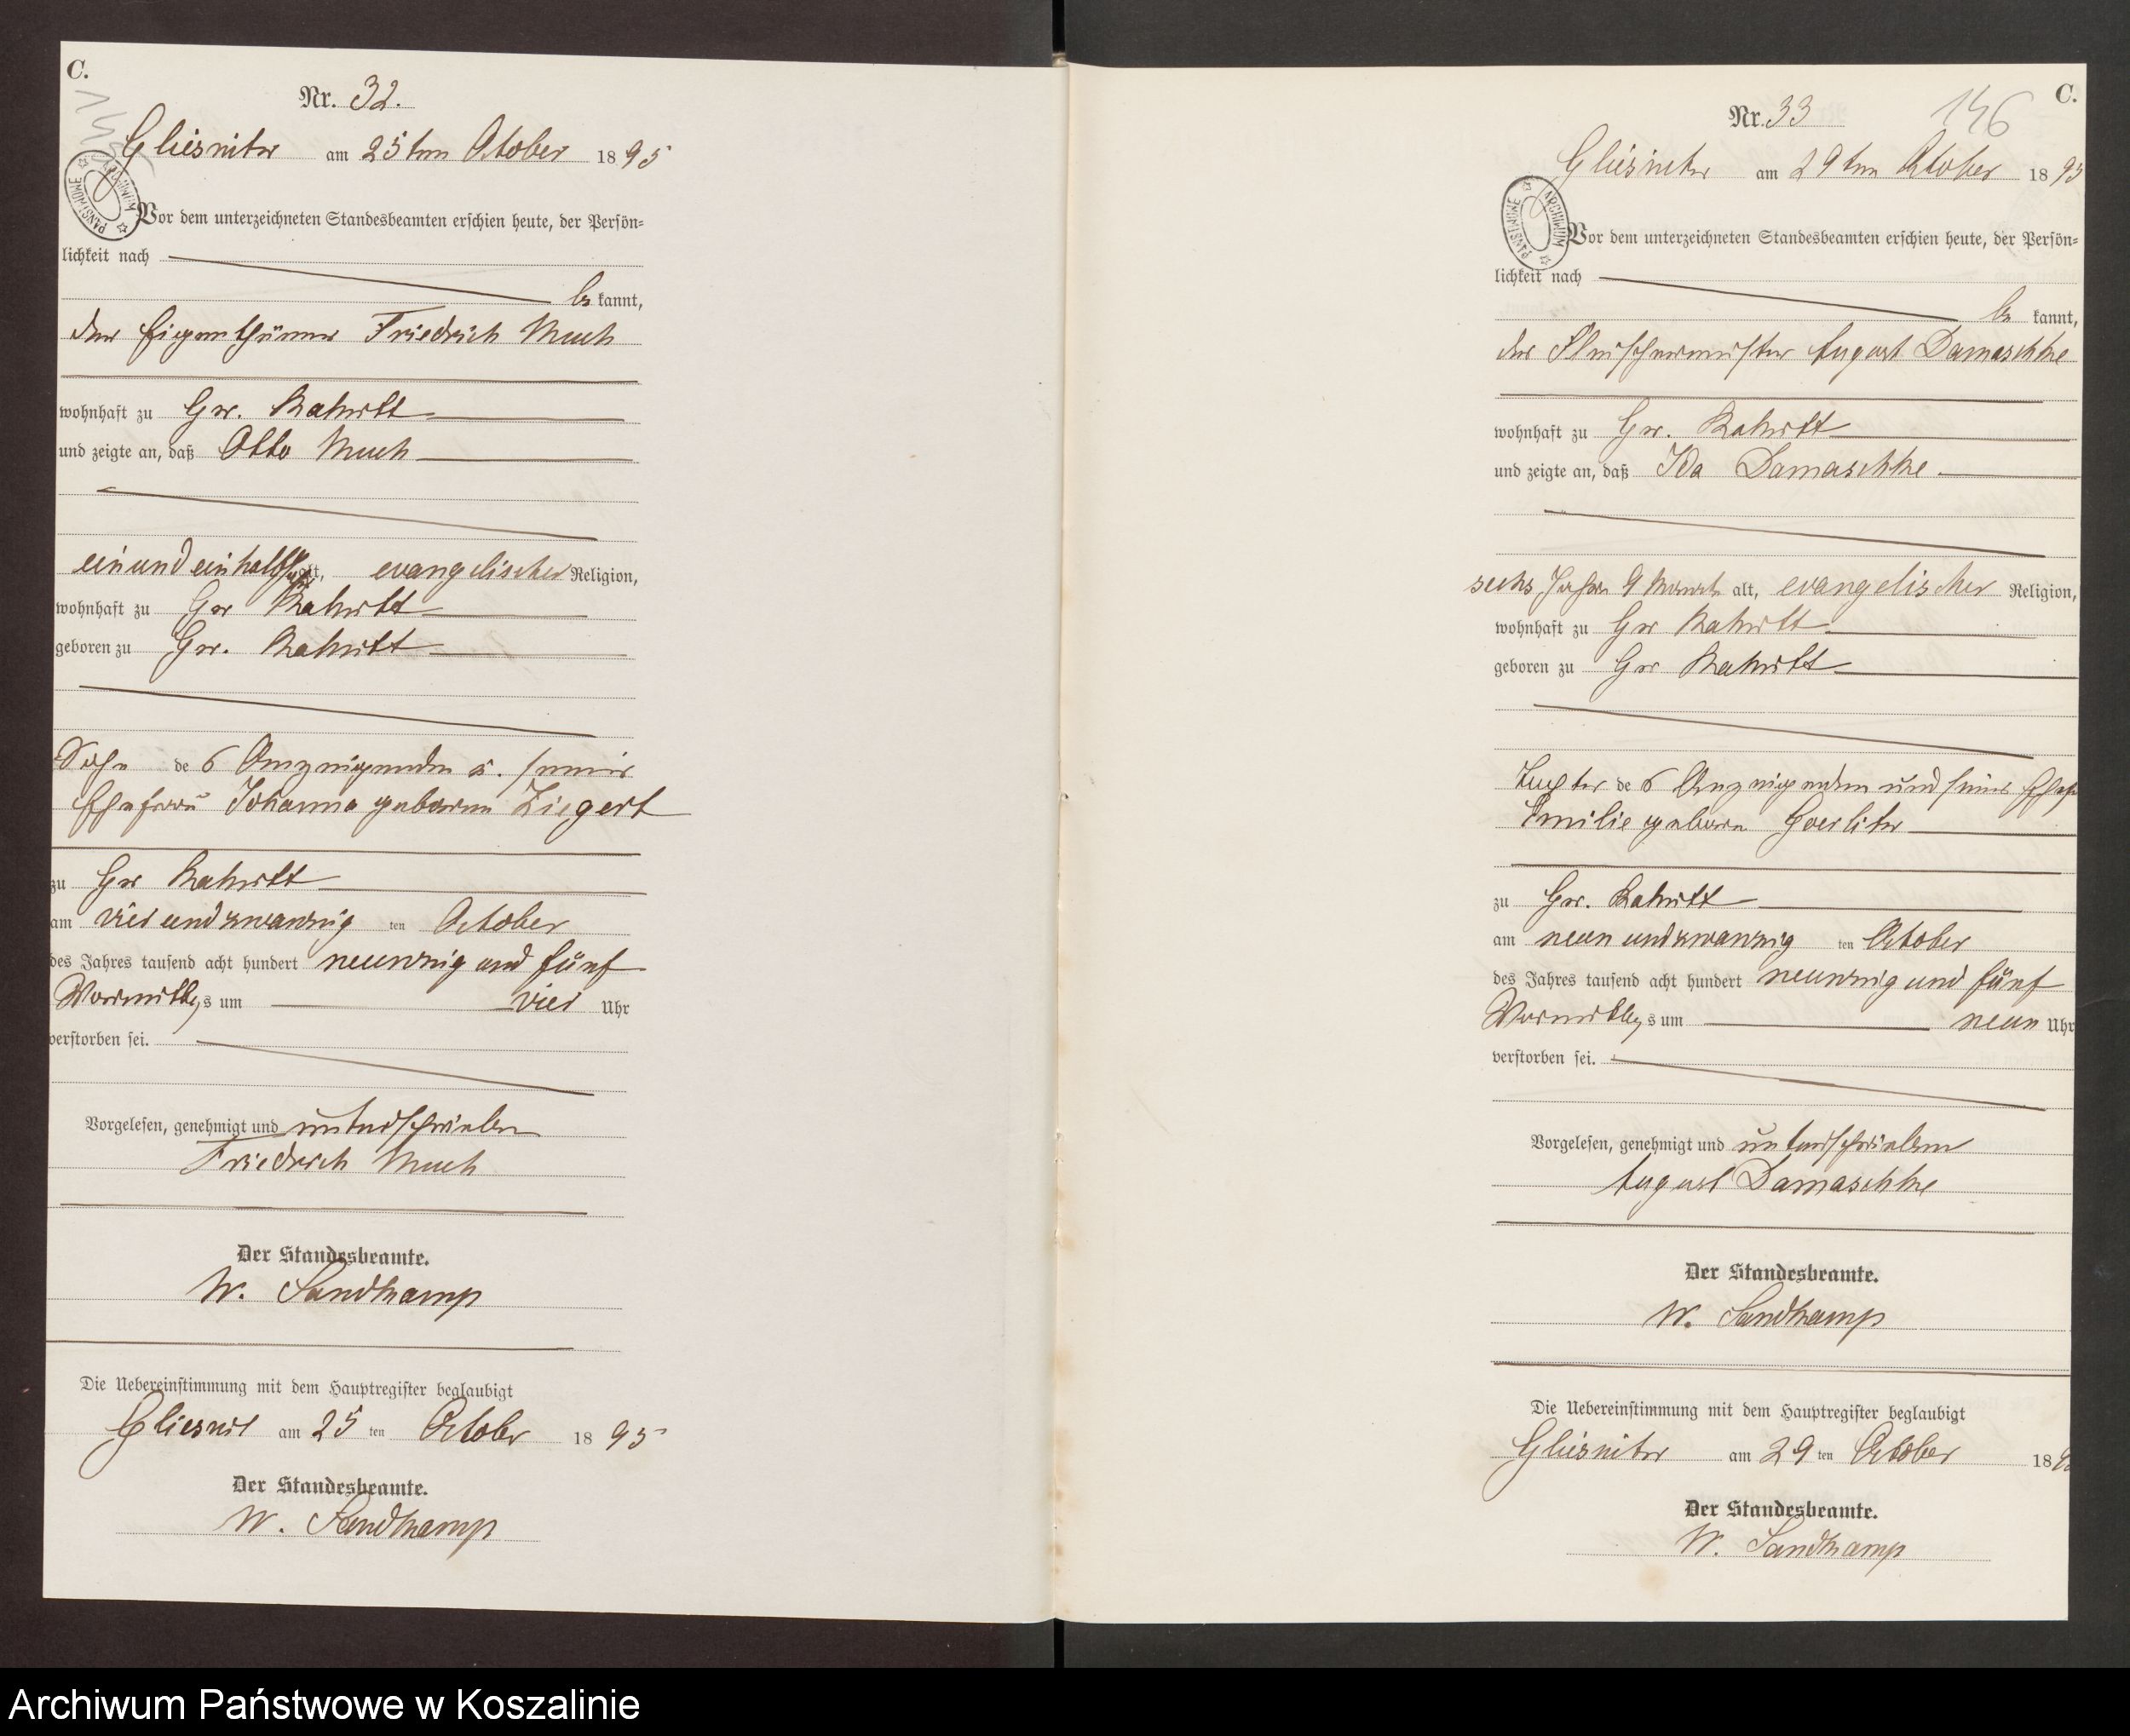 C.
Nr. 32.
Gliesnitz am 25ten October 1895
ARCHIWUM PAŃSTWOWE
Vor dem unterzeichneten Standesbeamten erschien heute, der Persön-
lichkeit nach
be kannt,
der Eigenthümer Friedrich Much
wohnhaft zu Gr.
und zeigte an, daß Otto Much
ein und einhalb Jahr alt, evangelischer Religion,
wohnhaft zu Gr
geboren zu Gr.
Sohn des Anzeigenden u. seiner
Ehefrau Johanna geborene Ziegert
zu Gr
am vier und zwanzig ten October
des Jahres tausend acht hundert neunzig und fünf
Vormittags um vier Uhr
verstorben sei.
Vorgelesen, genehmigt und unterschrieben
Friedrich Much
Der Standesbeamte.
W. Sandkamp
Die Uebereinstimmung mit dem Hauptregister beglaubigt
am 25 ten October 1895
Der Standesbeamte.
W. Sandkamp
146
C.
Nr. 33
Gliesnitz am 29ten October 1895
ARCHIWUM PAŃSTWOWE
Vor dem unterzeichneten Standesbeamten erschien heute, der Persön-
lichkeit nach
be kannt,
der Fleischermeister August Damaschke
wohnhaft zu Gr.
und zeigte an, daß Ida Damaschke
sechs Jahre 9 Monate alt, evangelischer Religion,
wohnhaft zu Gr
geboren zu Gr
Tochter des Anzeigenden und seiner Ehefr
Emilie geborene Goerlitz
zu Gr.
am neun und zwanzig ten October
des Jahres tausend acht hundert neunzig und fünf
Vormittags um neun Uhr
verstorben sei.
Vorgelesen, genehmigt und unterschrieben
August Damaschke
Der Standesbeamte.
W. Sandkamp
Die Uebereinstimmung mit dem Hauptregister beglaubigt
Gliesnitz am 29 ten October 189
Der Standesbeamte.
W. Sandkamp
Archiwum Państwowe w Koszalinie